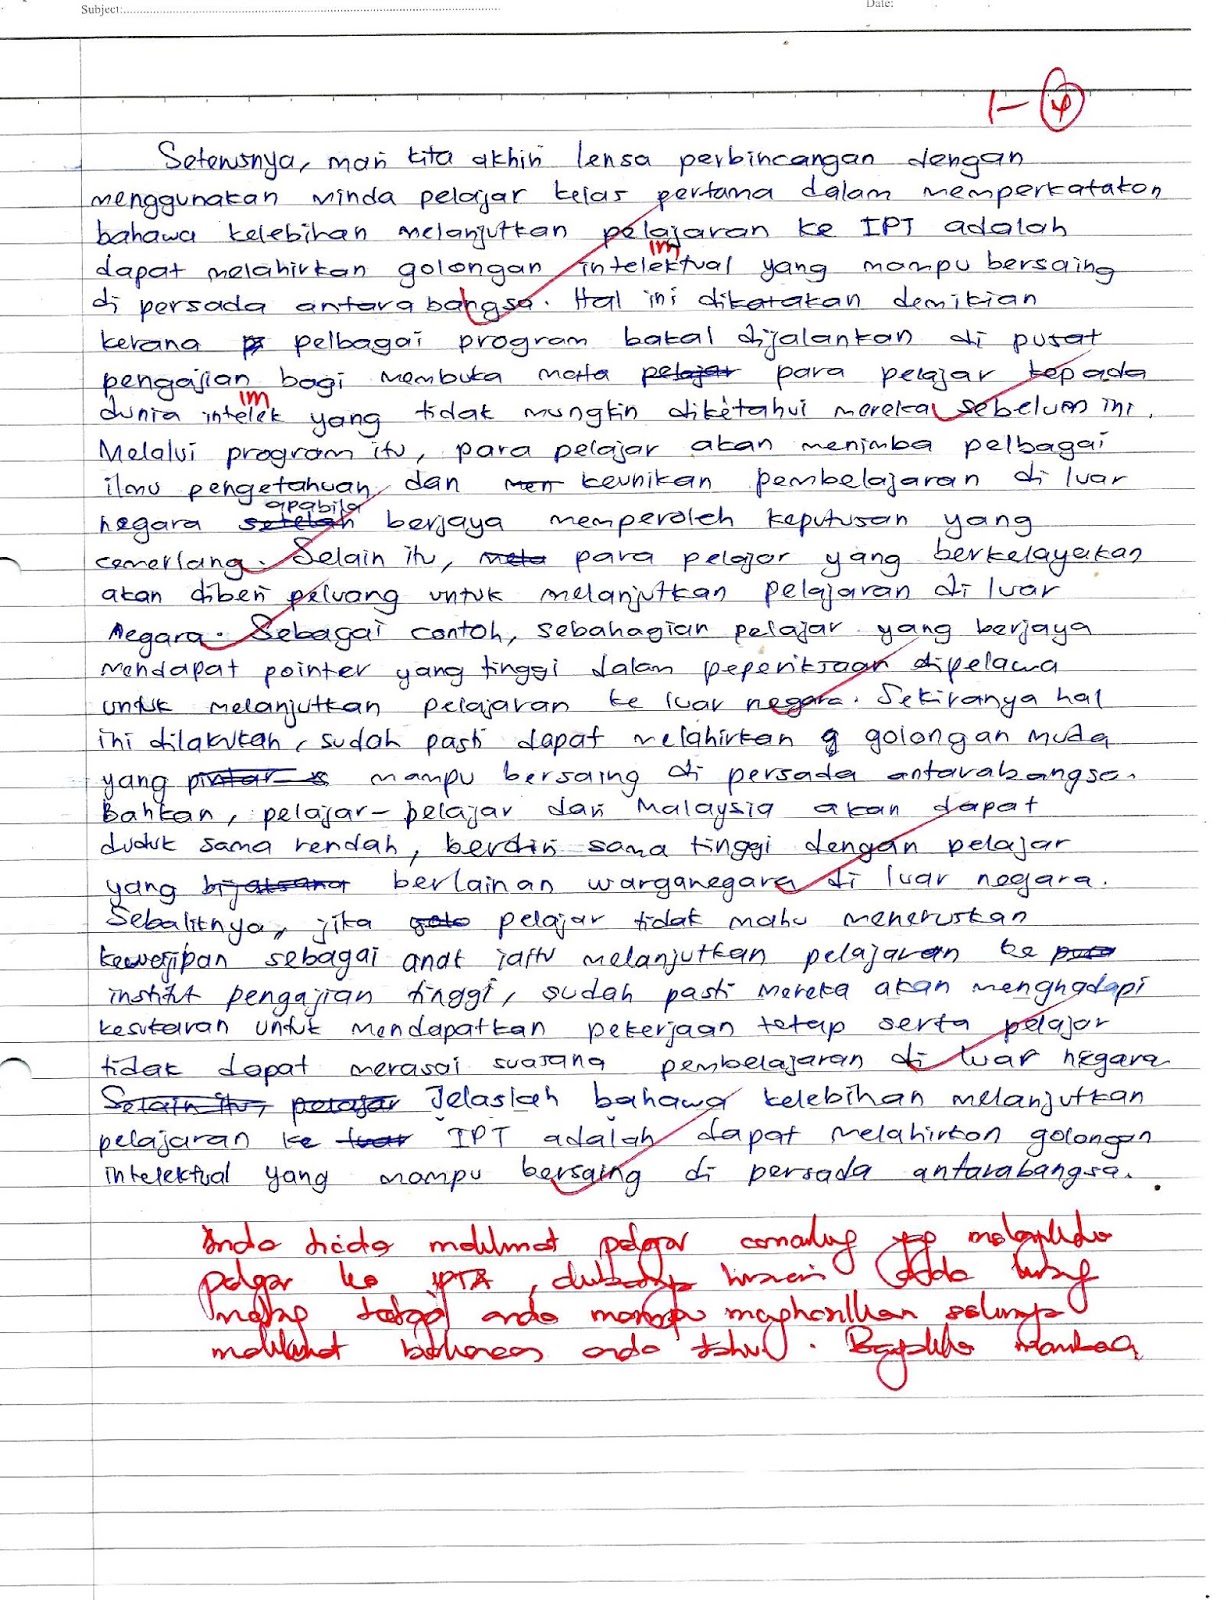 Subject:
Date:
1- 4
Seterusnya, mari kita akhiri lensa perbincangan dengan
menggunakan minda pelajar kelas pertama dalam memperkatakan
bahawa kelebihan melanjutkan pelajaran ke IPT adalah
im
dapat melahirkan golongan intelektual yang mampu bersaing
di persada antarabangsa. Hal ini dikatakan demikian
kerana pelbagai program bakal dijalankan di pusat
pengajian bagi membuka mata pelajar para pelajar kepada
im
dunia intelek yang tidak mungkin diketahui mereka sebelum ini.
Melalui program itu, para pelajar akan menimba pelbagai
ilmu pengetahuan dan men keunikan pembelajaran di luar
apabila
negara setelah berjaya memperoleh keputusan yang
cemerlang. Selain itu, para pelajar yang berkelayakan
akan diberi peluang untuk melanjutkan pelajaran di luar
negara. Sebagai contoh, sebahagian pelajar yang berjaya
mendapat pointer yang tinggi dalam peperiksaan dipelawa
untuk melanjutkan pelajaran ke luar negara. Sekiranya hal
ini dilakukan, sudah pasti dapat melahirkan g golongan muda
yang pintar mampu bersaing di persada antarabangsa.
Bahkan, pelajar-pelajar dari Malaysia akan dapat
duduk sama rendah, berdiri sama tinggi dengan pelajar
yang berlainan warganegara di luar negara.
Sebaliknya, jika pelajar tidak mahu meneruskan
kewajipan sebagai anak iaitu melanjutkan pelajaran ke
institut pengajian tinggi, sudah pasti mereka akan menghadapi
kesukaran untuk mendapatkan pekerjaan tetap serta pelajar
tidak dapat merasai suasana pembelajaran di luar negara
Selain itu, pelajar Jelaslah bahawa kelebihan melanjutkan
pelajaran ke luar IPT adalah dapat melahirkan golongan
intelektual yang mampu bersaing di persada antarabangsa.
Anda melihat pelajar yg
pelajar ke IPTA,
anda mampu menghasilkan
melihat anda tahu.